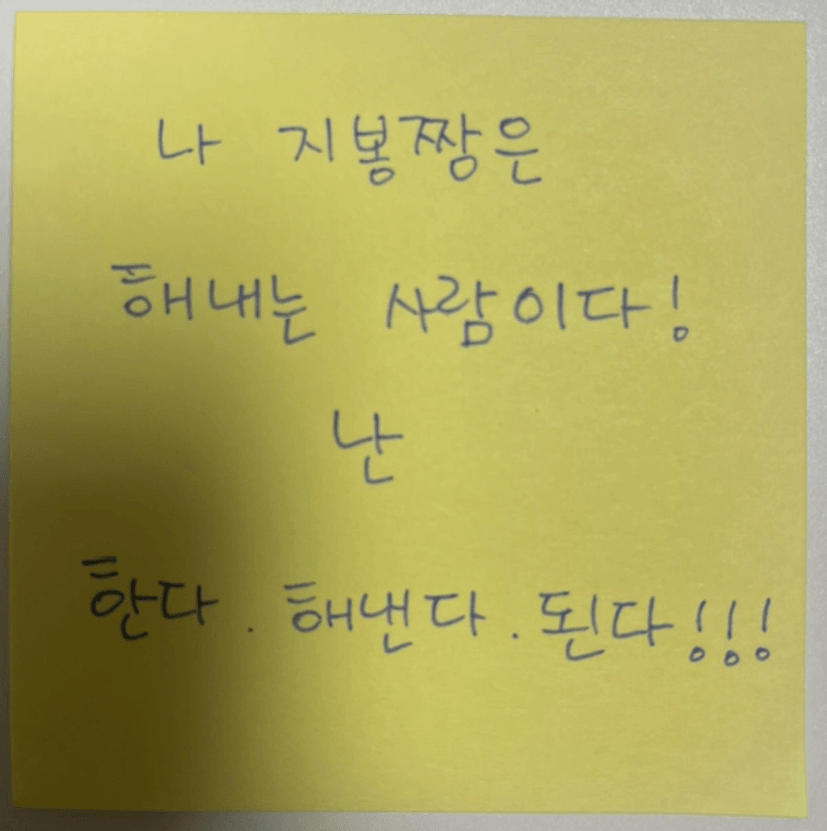 나 지봉짱은
해내는 사람이다!
난
한다. 해낸다. 된다!!!